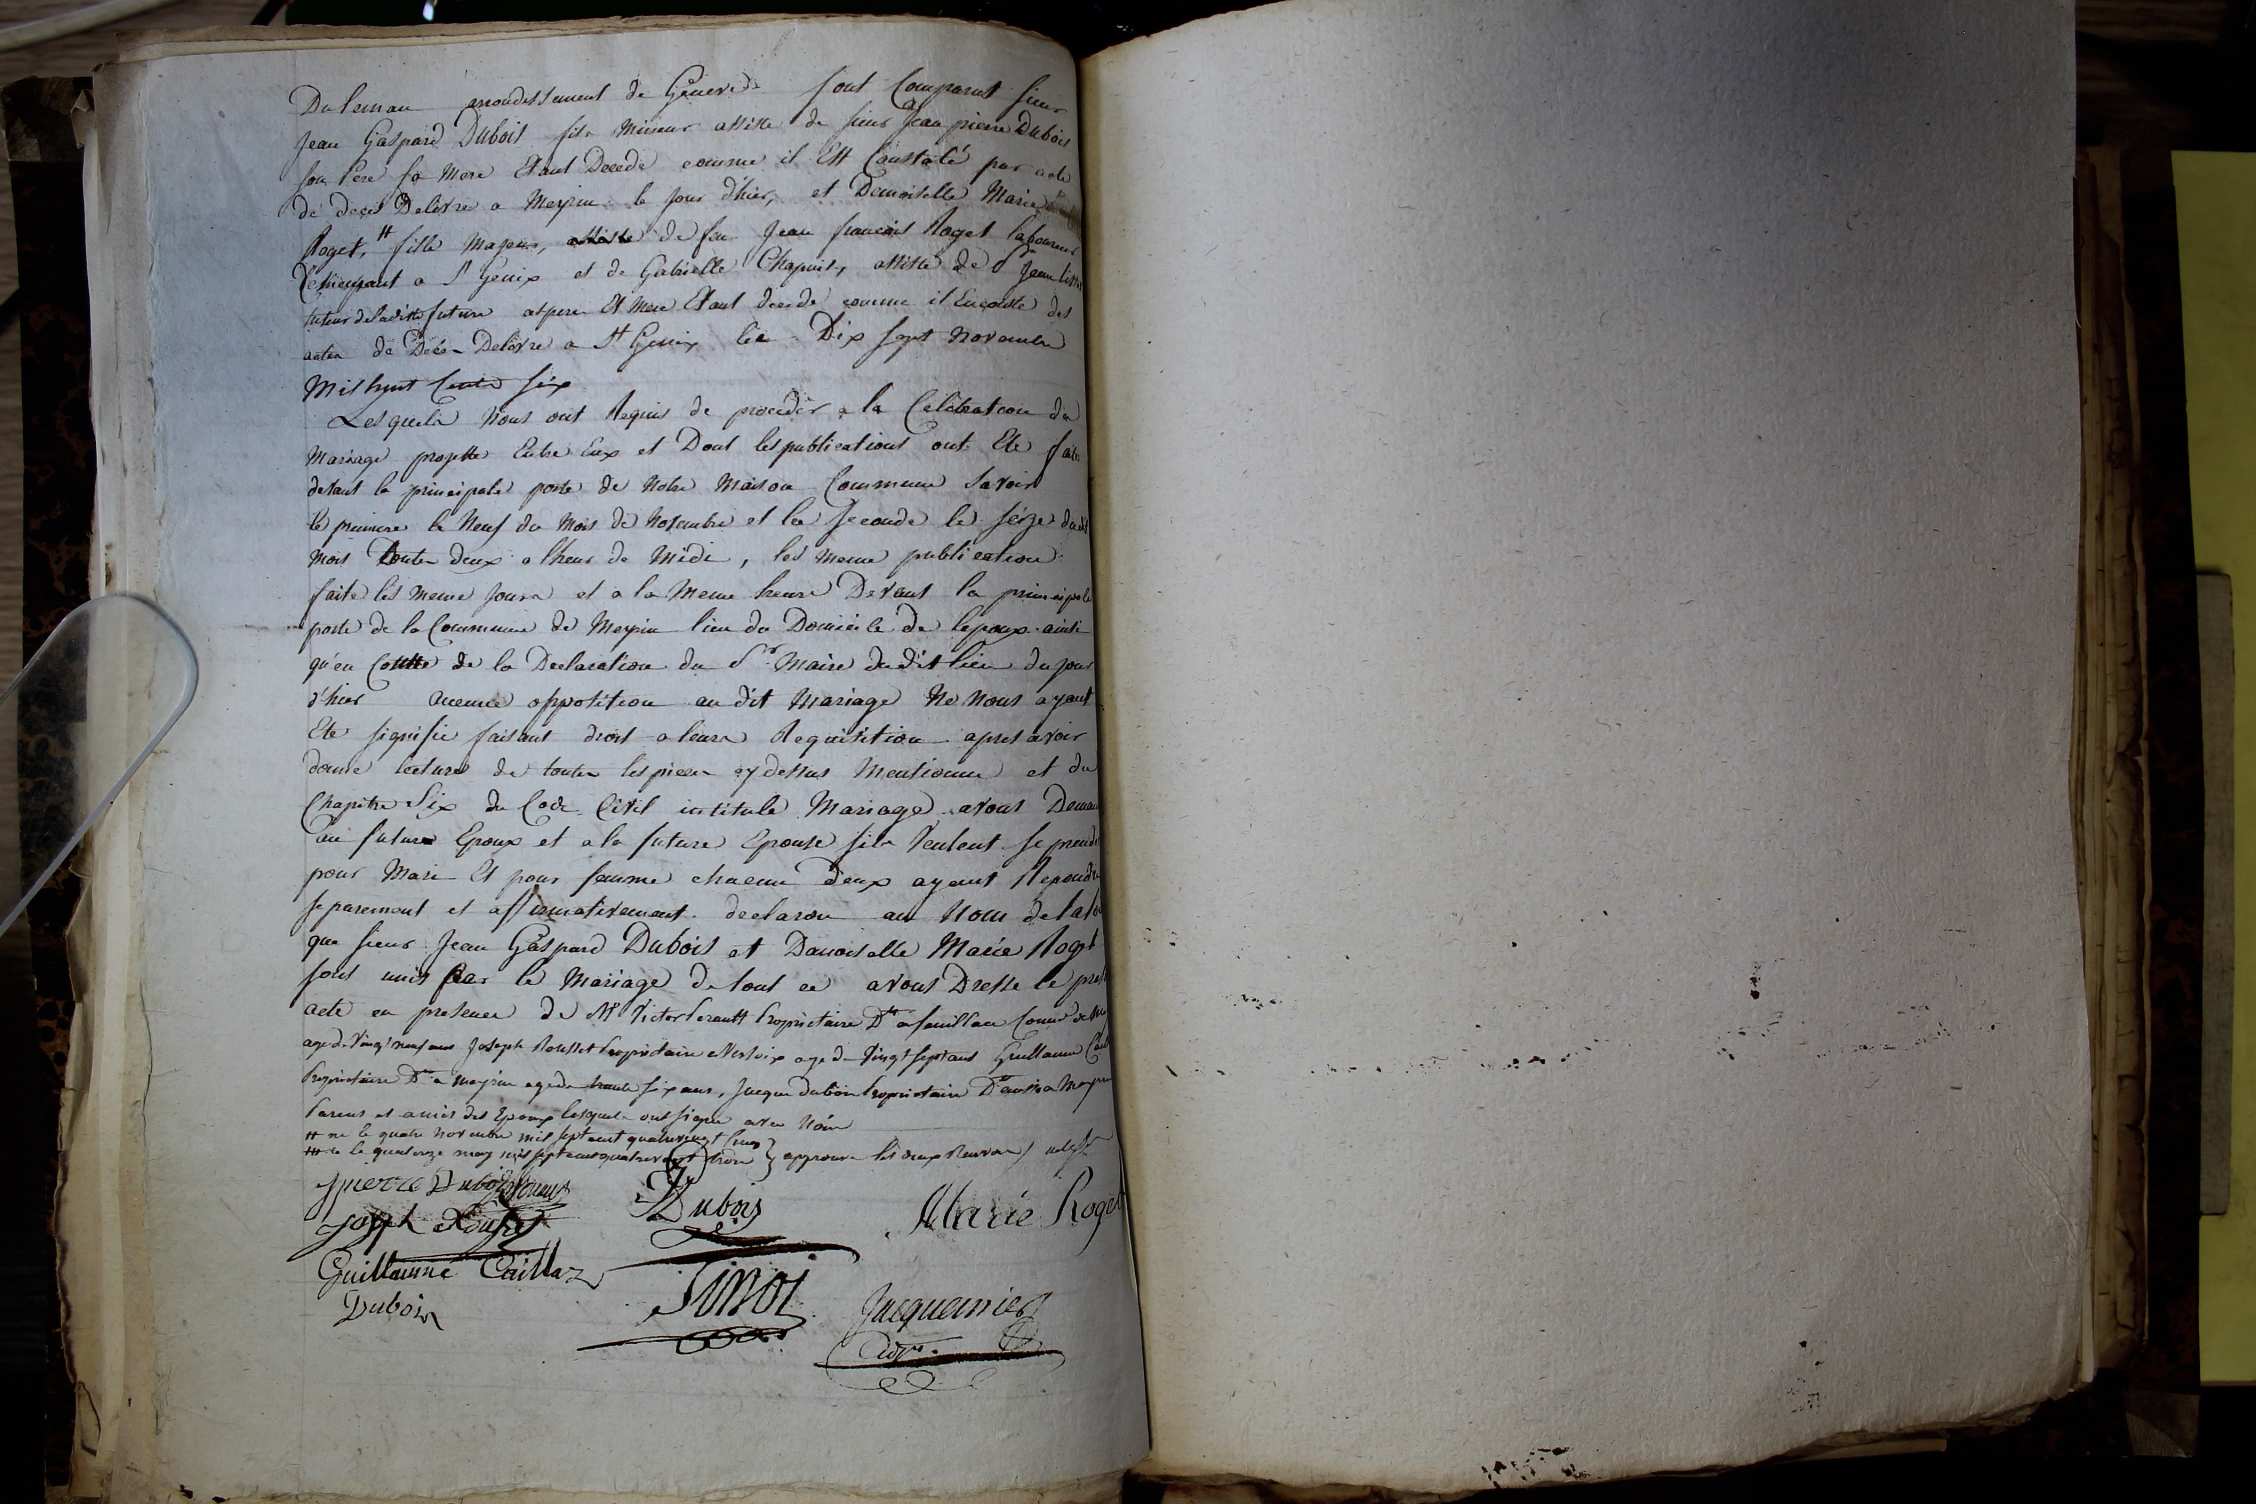 Du leman arrondissement de Geneve sont Comparut sieur
Jean Gaspard Dubois fils Mineur assiste de sieur Jean pierre Dubois
son Pere sa Mere Etant Decede comme il Est Constaté par acte
de deces Delivre a Meyrin le jour d'hier, et Demoiselle Marie
Roget, # fille Majeur, de feu Jean francois Roget laboureur
a St Genix et de Gabrielle Chapuis, assiste de Sr Jean
tuteur de laditte future Et Mere Etant decede comme il Enconste des
actes de Décès Delivre a St Genix le Dix sept Novembre
Mil huit Cents Six
Lesquels Nous ont Requis de proceder a la Celebration du
Mariage projette Entre Eux et Dont les publications ont Ete faites
devant la principale porte de Notre Maison Commune Savoir
la premiere le Neuf du Mois de Novembre et la Seconde le seize dudit
Mois Toutes deux a lheur de Midi, les meme publication
faite les meme jours et a la Meme heure Devant la principale
porte de la Commune de Meyrin lieu du Domicile de lepoux ainsi
qu'en Conste de la Declaration du Sr Maire dudit lieu du jour
d'hier aucune opposition au dit Mariage Ne Nous ayant
Ete signifie faisant droit a leurs Requisition apres avoir
donne lecture de toutes les pieces cy dessus Mentionne et du
Chapitre Six du Code Civil intitule Mariage avons Deman
au future Epoux et a la future Epouse sils Veulent se prendre
pour Mari Et pour femme chacun deux ayant Repondu
separement et affirmativemant declarons au Nom de la loi
que sieur Jean Gaspard Dubois et Damoiselle Marie Roget
sont unis par le Mariage de tout ce avons Dresse le present
acte en presence de Mr Victor Proprietaire Dt a feuillasse Comune de
age de Vingt neuf ans Joseph Rousset Proprietaire a Versoix age de Vingt sept ans Guillaume
Proprietaire Dt a Meyrin age de trente six ans, Jacque Dubois Proprietaire Dt aussi a Meyrin
Parens et amies des Epoux lesquels ont signe avec Nous
# ne le quatre Novembre mil sept cent quatrevingt cinq
# ne le quatorze may mil sept cent quatrevingt trois } approuve les deux Renvoy
J pierre Dubois
Dubois
Marie Roget
Joseph Rousset
Guillaume Caillaz
Dubois
Jacquemier
adjt.